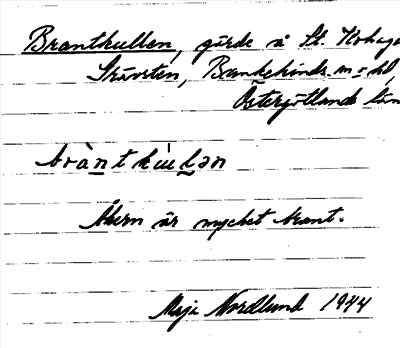 Brantkullen, gärde å St. Kohaga
Skärsten, Bankekinds sn o hd,
Östergötlands län
bràntkùlən
Åkern är mycket brant.
Maja Nordlund 1944